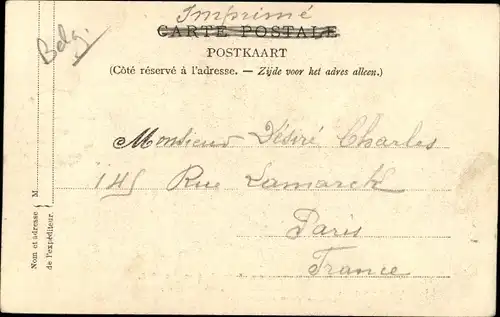 Imprimé
CARTE POSTALE
Belg.
POSTKAART
(Côté réservé à l'adresse. — Zijde voor het adres alleen.)
Monsieur Désiré Charles
145 Rue Lamarck
Paris
France
Nom et adresse } M.
de l'expéditeur.